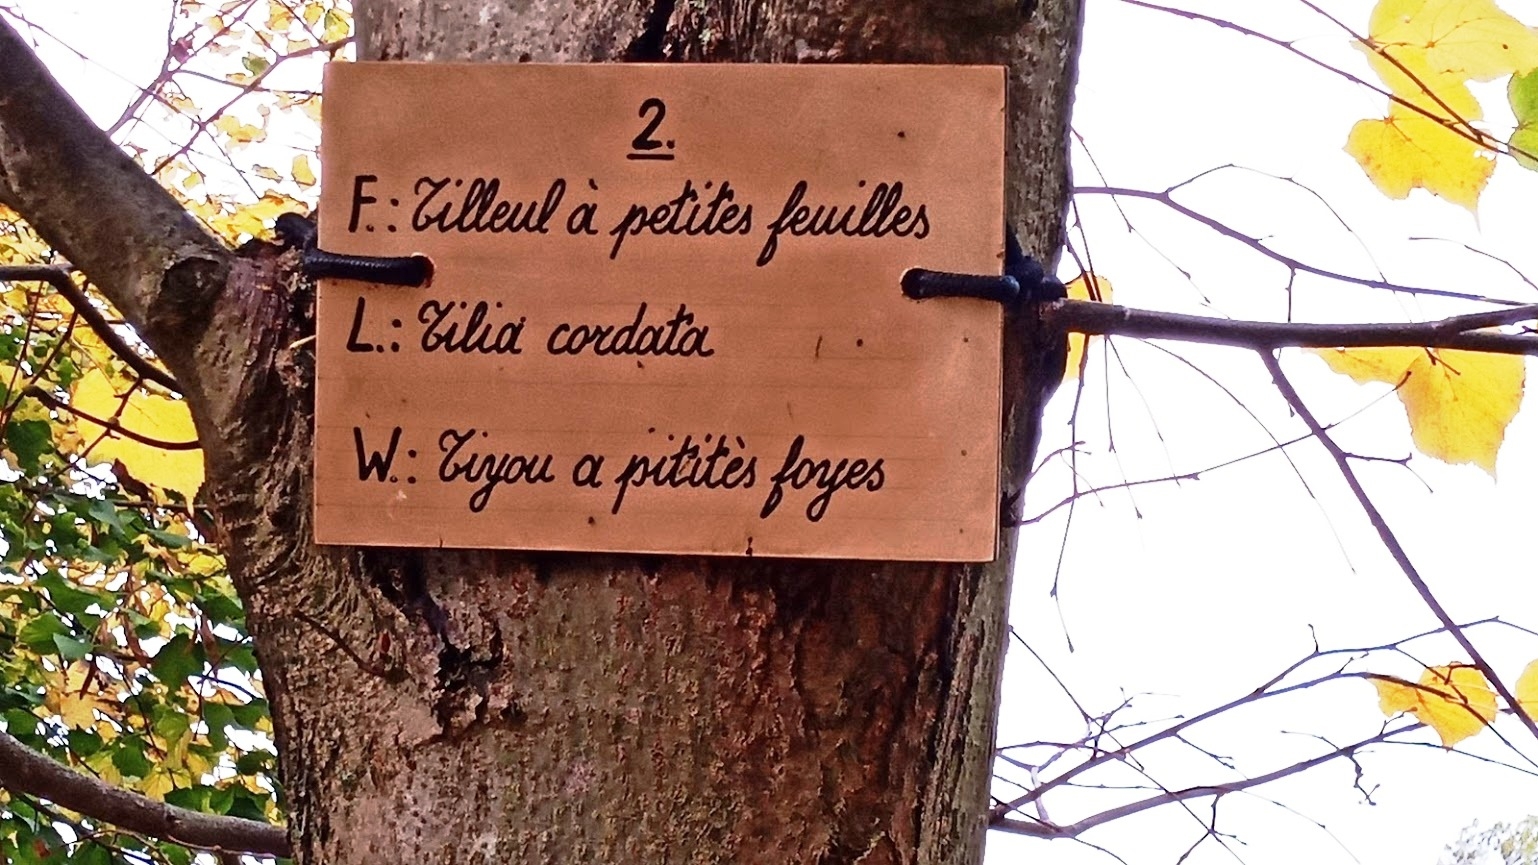 2.
F.: Tilleul à petites feuilles
L.: Tilia cordata
W.: Tiyou a pititès foyes